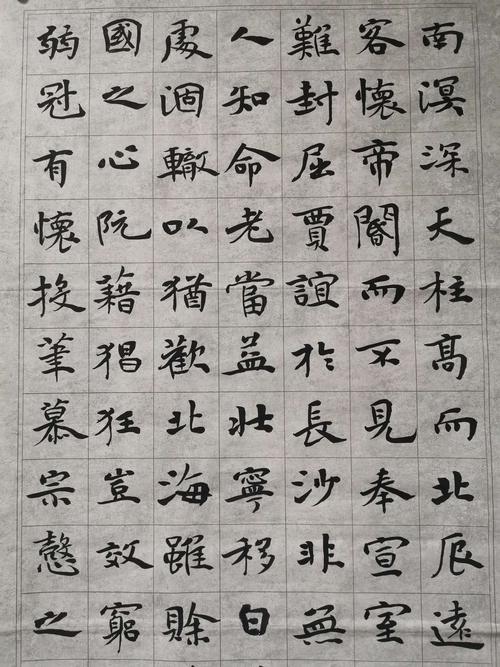 南溟深天柱高而北辰遠
客懷帝閽而不見奉宣室
難封屈賈誼於長沙非無
人知命老當益壯寧移白
處涸轍以猶歡北海雖賒
國之心阮藉猖狂豈效窮
弱冠有懷投筆慕宗愨之